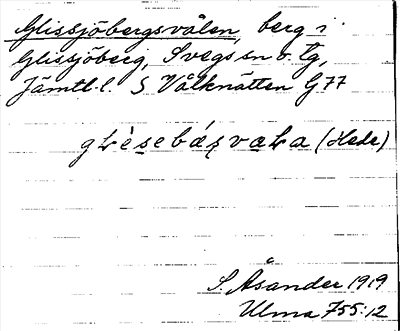 Glissjöbergsvålen, berg i
Glissjöberg, Svegs sn o. tg,
Jämtl. l. S Vålknätten G77
gLèsebáʂvaLa (Hede)
S. Åsander 1919
Ulma 755:12